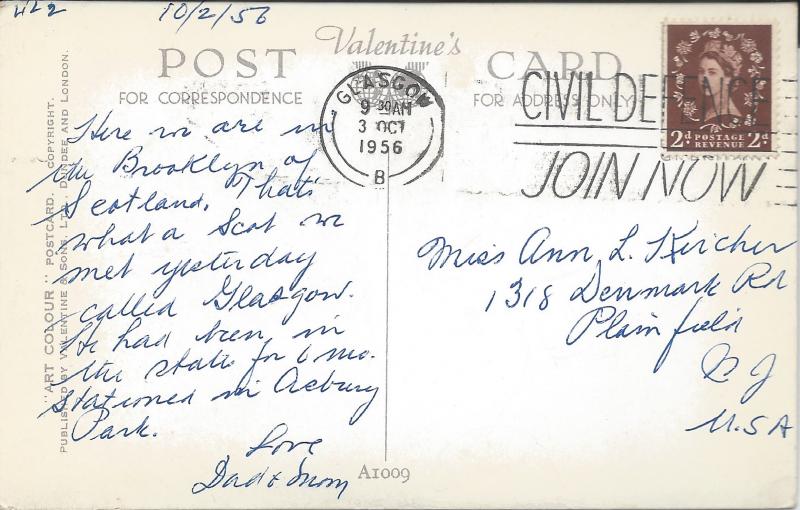 422
10/2/56
Valentine's
POST CARD
FOR CORRESPONDENCE
FOR ADDRESS ONLY
GLASGOW
9-30AM
3 OCT
1956
B
CIVIL DEFENCE
JOIN NOW
2d POSTAGE 2d
REVENUE
"ART COLOUR" POSTCARD. COPYRIGHT.
PUBLISHED BY VALENTINE & SONS, LTD., DUNDEE AND LONDON.
Here we are in
the Brooklyn of
Scotland. That's
what a Scot we
met yesterday
called Glasgow.
He had been in
the states for 6 mo.
stationed in Asbury
Park.
Love
Dad & Mom
Miss Ann L. Kircher
1318 Denmark Rd
Plainfield
N J
U.S A
A1009